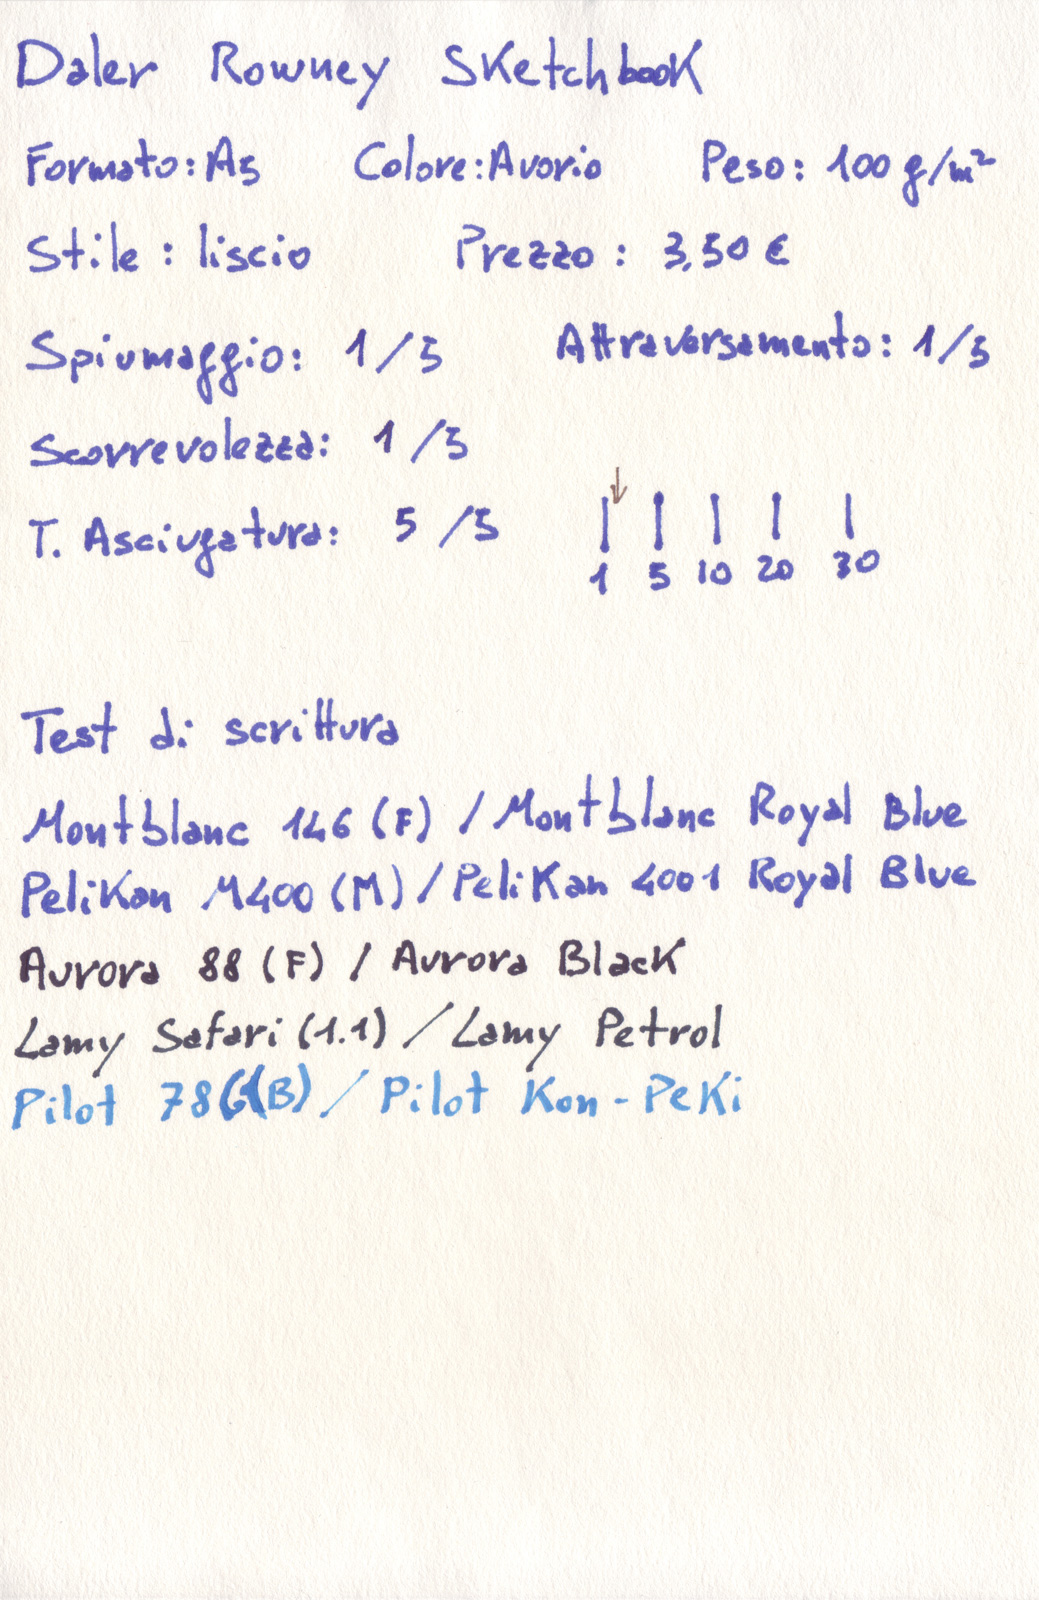 Daler Rowney Sketchbook
Formato: A5 Colore: Avorio Peso: 100 g/m²
Stile : liscio Prezzo : 3,50 €
Spiumaggio: 1/5 Attraversamento: 1/5
Scorrevolezza: 1/5
T. Asciugatura: 5/5
1 5 10 20 30
Test di scrittura
Montblanc 146 (F) / Montblanc Royal Blue
Pelikan M400 (M) / Pelikan 4001 Royal Blue
Aurora 88 (F) / Aurora Black
Lamy Safari (1.1) / Lamy Petrol
Pilot 78G(B) / Pilot Kon-Peki